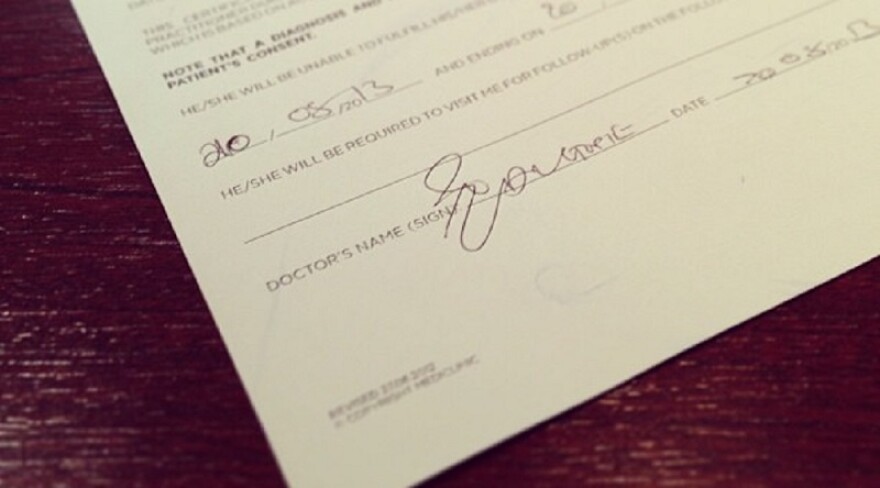 THIS CERTIFIC
PRACTITIONER
WHICH IS BASED ON
NOTE THAT A DIAGNOSIS AND
PATIENT'S CONSENT.
HE/SHE WILL BE UNABLE TO FULFILL HIS/HER
20 / 05 /2013 AND ENDING ON 20 /
HE/SHE WILL BE REQUIRED TO VISIT ME FOR FOLLOW-UP(S) ON THE FOLLO
DOCTOR'S NAME (SIGN) DATE 20 05/2013
REVISED
© COPYRIGHT MEDICLINIC